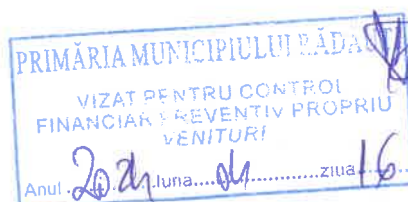 PRIMĂRIA MUNICIPIULUI RĂDĂUȚI
VIZAT PENTRU CONTROL
FINANCIAR PREVENTIV PROPRIU
VENITURI
Anul .2024.luna....04..............ziua 16